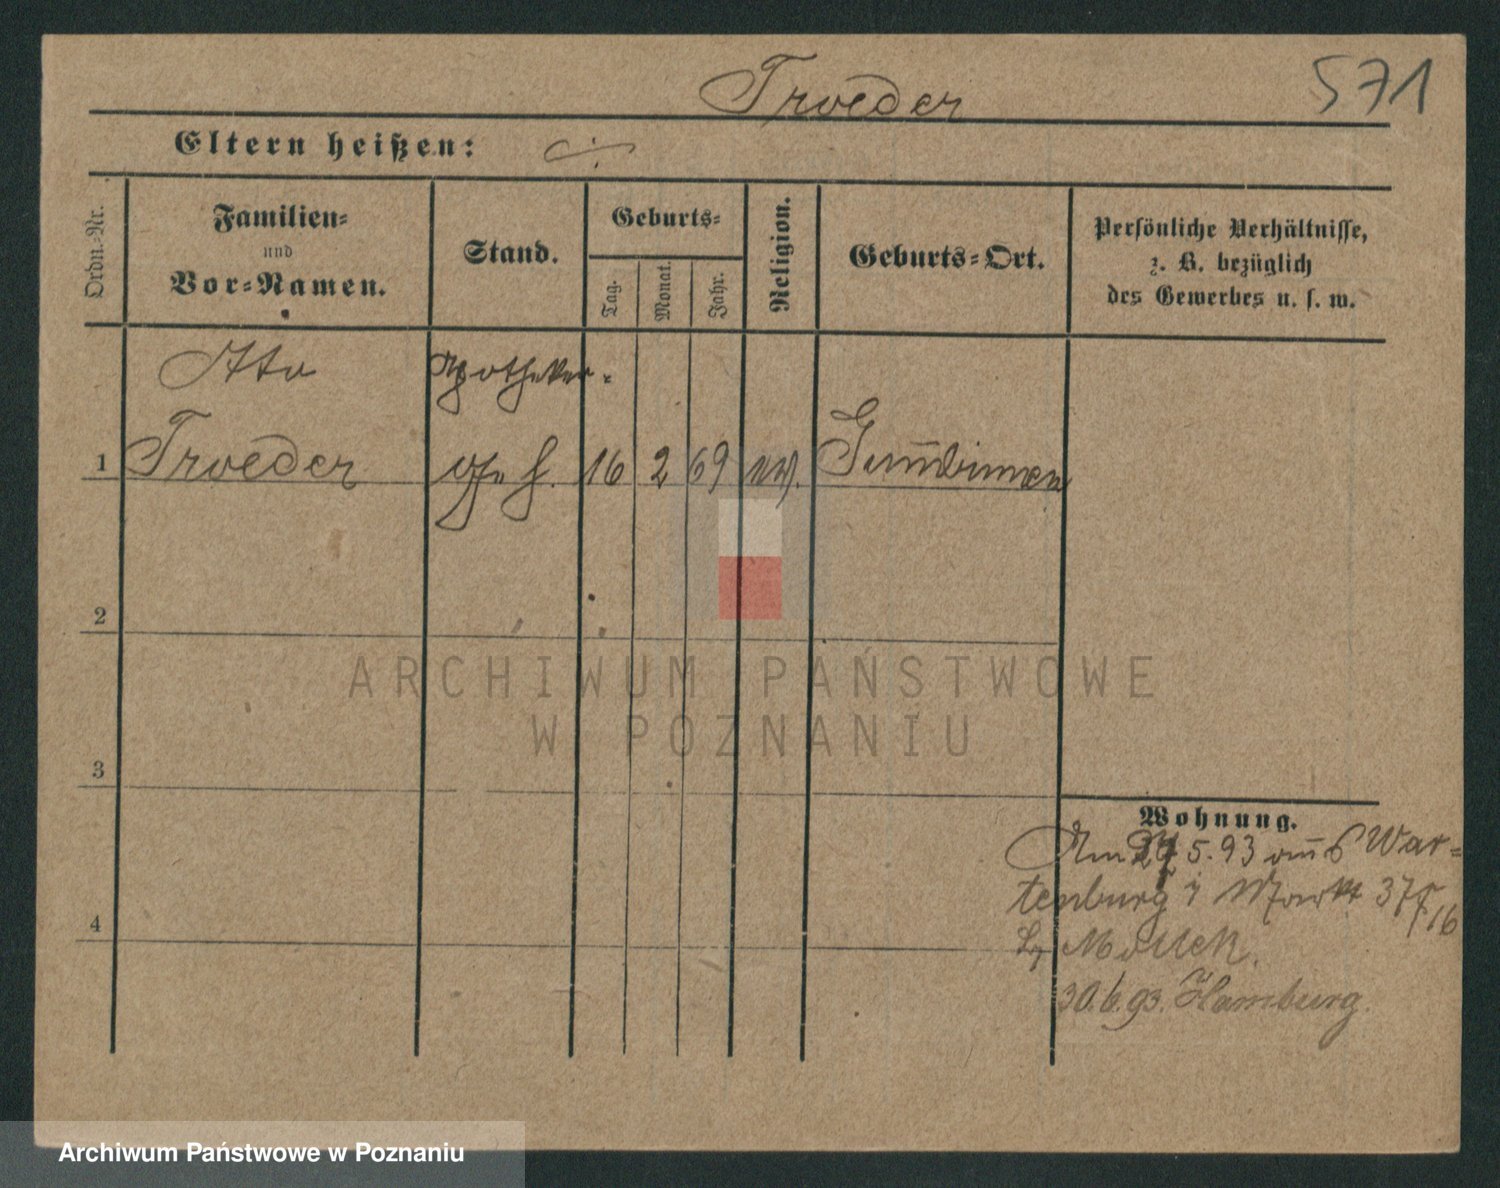 Troeder 571
Eltern heißen:
Ordn.-Nr.
Familien-
und
Vor-Namen.
Stand.
Geburts-
Tag.
Monat.
Jahr.
Religion.
Geburts-Ort.
Persönliche Verhältnisse,
z. B. bezüglich
des Gewerbes u. s. w.
Otto Apotheker-
1 Troeder 16 2 69 ev. Gumbinnen
2
3
4
Wohnung.
Am 5.93 aus War-
tenburg Markt 37
16
30.6.93. Hamburg.
ARCHIWUM PAŃSTWOWE
W POZNANIU
Archiwum Państwowe w Poznaniu